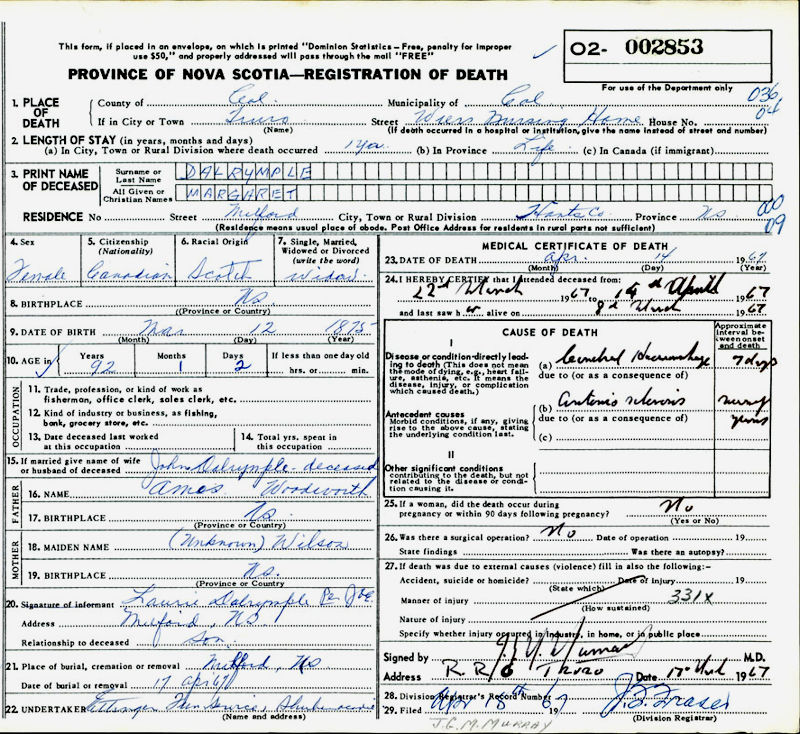 This form, if placed in an envelope, on which is printed "Dominion Statistics – Free, penalty for improper
use $50," and properly addressed will pass through the mail "FREE"
✓
O2- 002853
PROVINCE OF NOVA SCOTIA—REGISTRATION OF DEATH
For use of the Department only
036
04
1. PLACE OF DEATH
County of Col. Municipality of Col
If in City or Town Truro Street Wiers Nursing Home House No.
(Name) (If death occurred in a hospital or institution, give the name instead of street and number)
2. LENGTH OF STAY (in years, months and days)
(a) In City, Town or Rural Division where death occurred 1 yr. (b) In Province Life (c) In Canada (if immigrant)
3. PRINT NAME OF DECEASED
Surname or Last Name DALRYMPLE
All Given or Christian Names MARGARET
RESIDENCE No Street Milford City, Town or Rural Division Hants Co. Province NS
000
09
(Residence means usual place of abode. Post Office Address for residents in rural parts not sufficient)
4. Sex Female
5. Citizenship (Nationality) Canadian
6. Racial Origin Scotch
7. Single, Married, Widowed or Divorced (write the word) Widow
8. BIRTHPLACE NS
(Province or Country)
9. DATE OF BIRTH Mar 12 1875
(Month) (Day) (Year)
10. AGE in Years 92 Months 1 Days 2 If less than one day old
hrs. or min.
OCCUPATION
11. Trade, profession, or kind of work as
fisherman, office clerk, sales clerk, etc.
12. Kind of industry or business, as fishing,
bank, grocery store, etc.
13. Date deceased last worked
at this occupation
14. Total yrs. spent in
this occupation
15. If married give name of wife
or husband of deceased John Dalrymple - deceased
FATHER
16. NAME Amos Woodworth
17. BIRTHPLACE NS.
(Province or Country)
MOTHER
18. MAIDEN NAME (Unknown) Wilson
19. BIRTHPLACE NS.
(Province or Country)
20. Signature of informant Laurie Dalrymple Per
Address Milford, NS
Relationship to deceased Son
21. Place of burial, cremation or removal Milford, NS
Date of burial or removal 17 Apr 67
22. UNDERTAKER Ettinger
(Name and address)
MEDICAL CERTIFICATE OF DEATH
23. DATE OF DEATH Apr. 14 1967
(Month) (Day) (Year)
24. I HEREBY CERTIFY that I attended deceased from:
22nd March 1967 to 14th April 1967
and last saw her alive on 8th March 1967
CAUSE OF DEATH
Approximate interval between onset and death
I
Disease or condition directly leading to death (This does not mean the mode of dying, e.g., heart failure, asthenia, etc. It means the disease, injury, or complication which caused death.)
(a) Cerebral Haemorrhage 7 days
due to (or as a consequence of)
Antecedent causes
Morbid conditions, if any, giving rise to the above cause, stating the underlying condition last.
(b) Arteriosclerosis many years
due to (or as a consequence of)
(c)
II
Other significant conditions
contributing to the death, but not related to the disease or condition causing it.
25. If a woman, did the death occur during
pregnancy or within 90 days following pregnancy? No
(Yes or No)
26. Was there a surgical operation? No Date of operation 19
State findings Was there an autopsy?
27. If death was due to external causes (violence) fill in also the following:-
Accident, suicide or homicide? Date of injury 19
(State which)
Manner of injury 331X
(How sustained)
Nature of injury
Specify whether injury occurred in industry, in home, or in public place
Signed by J.G.M. Murray M.D.
Address RR 6 TRURO Date 17 1967
28. Division Registrar's Record Number
29. Filed Apr 18th 1967 Fraser
(Division Registrar)
J.G.M. MURRAY